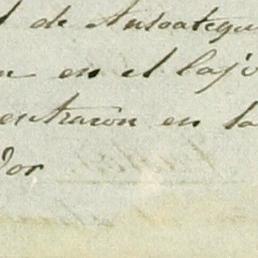 de Ansoategui
en el Cajo
entraron en la
dor